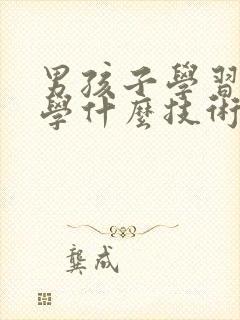 男孩子學習
學什麼技術
龔成